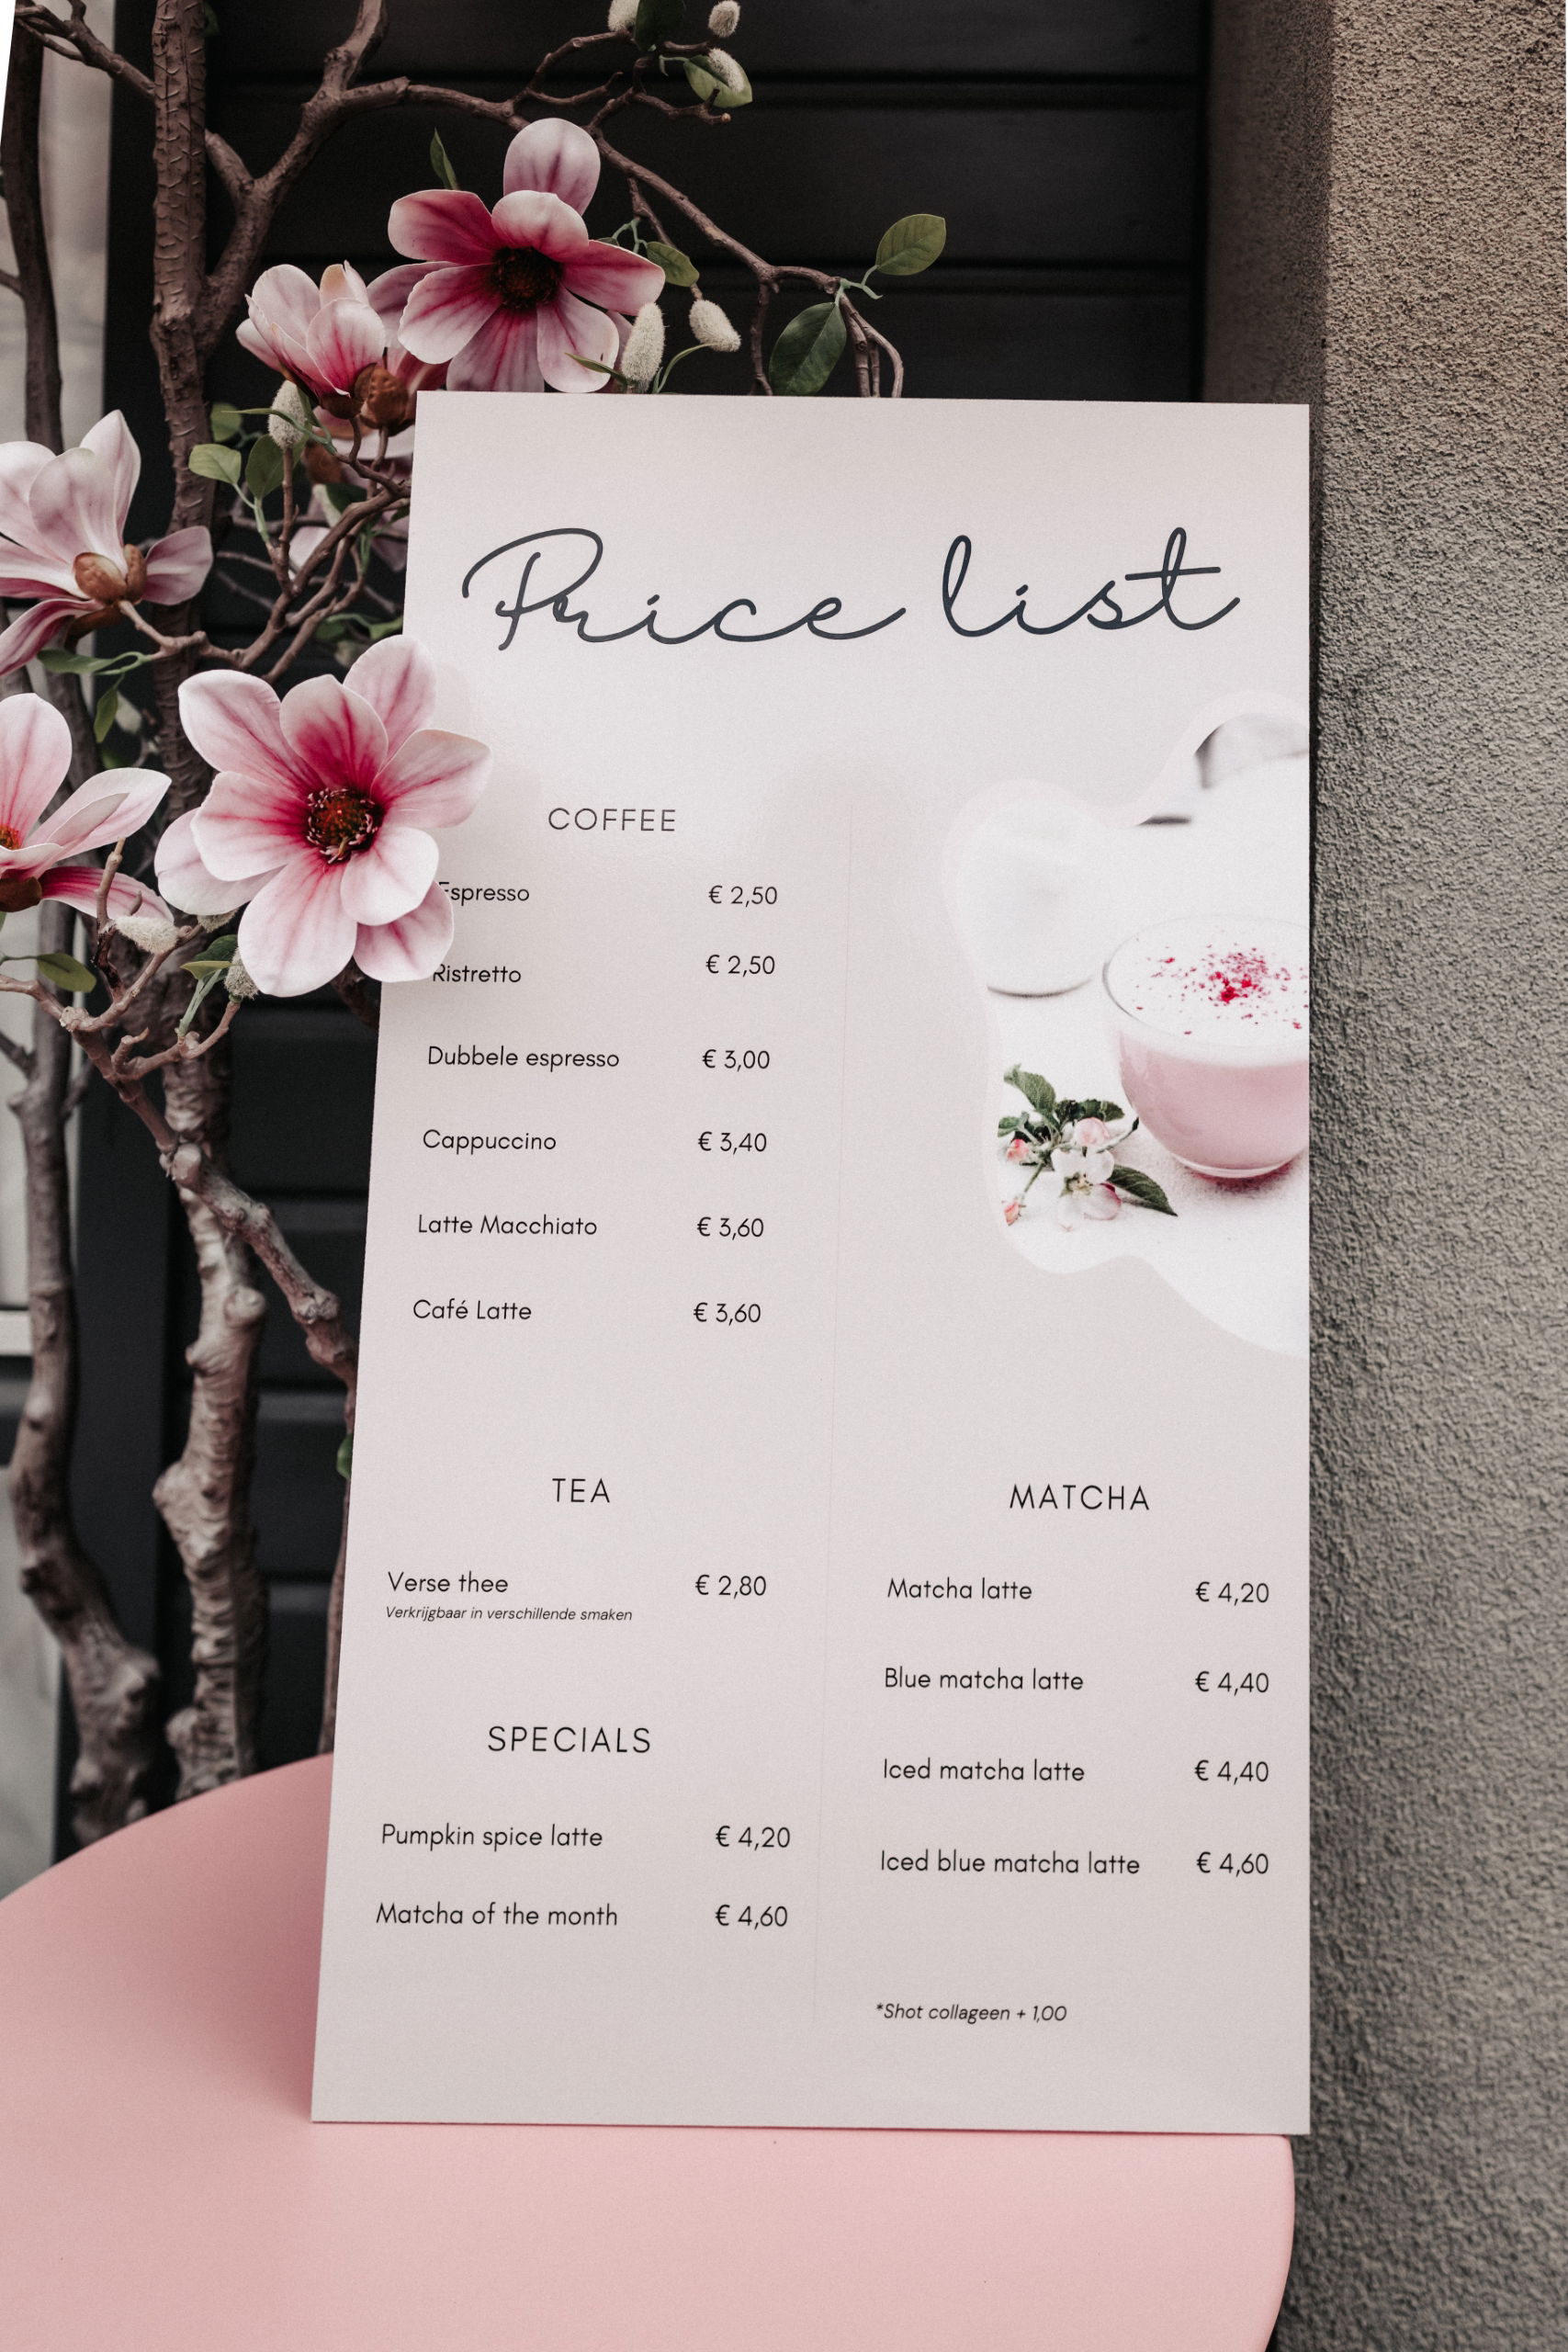 Price list
COFFEE
Espresso € 2,50
Ristretto € 2,50
Dubbele espresso € 3,00
Cappuccino € 3,40
Latte Macchiato € 3,60
Café Latte € 3,60
TEA
Verse thee € 2,80
Verkrijgbaar in verschillende smaken
SPECIALS
Pumpkin spice latte € 4,20
Matcha of the month € 4,60
MATCHA
Matcha latte € 4,20
Blue matcha latte € 4,40
Iced matcha latte € 4,40
Iced blue matcha latte € 4,60
*Shot collageen + 1,00